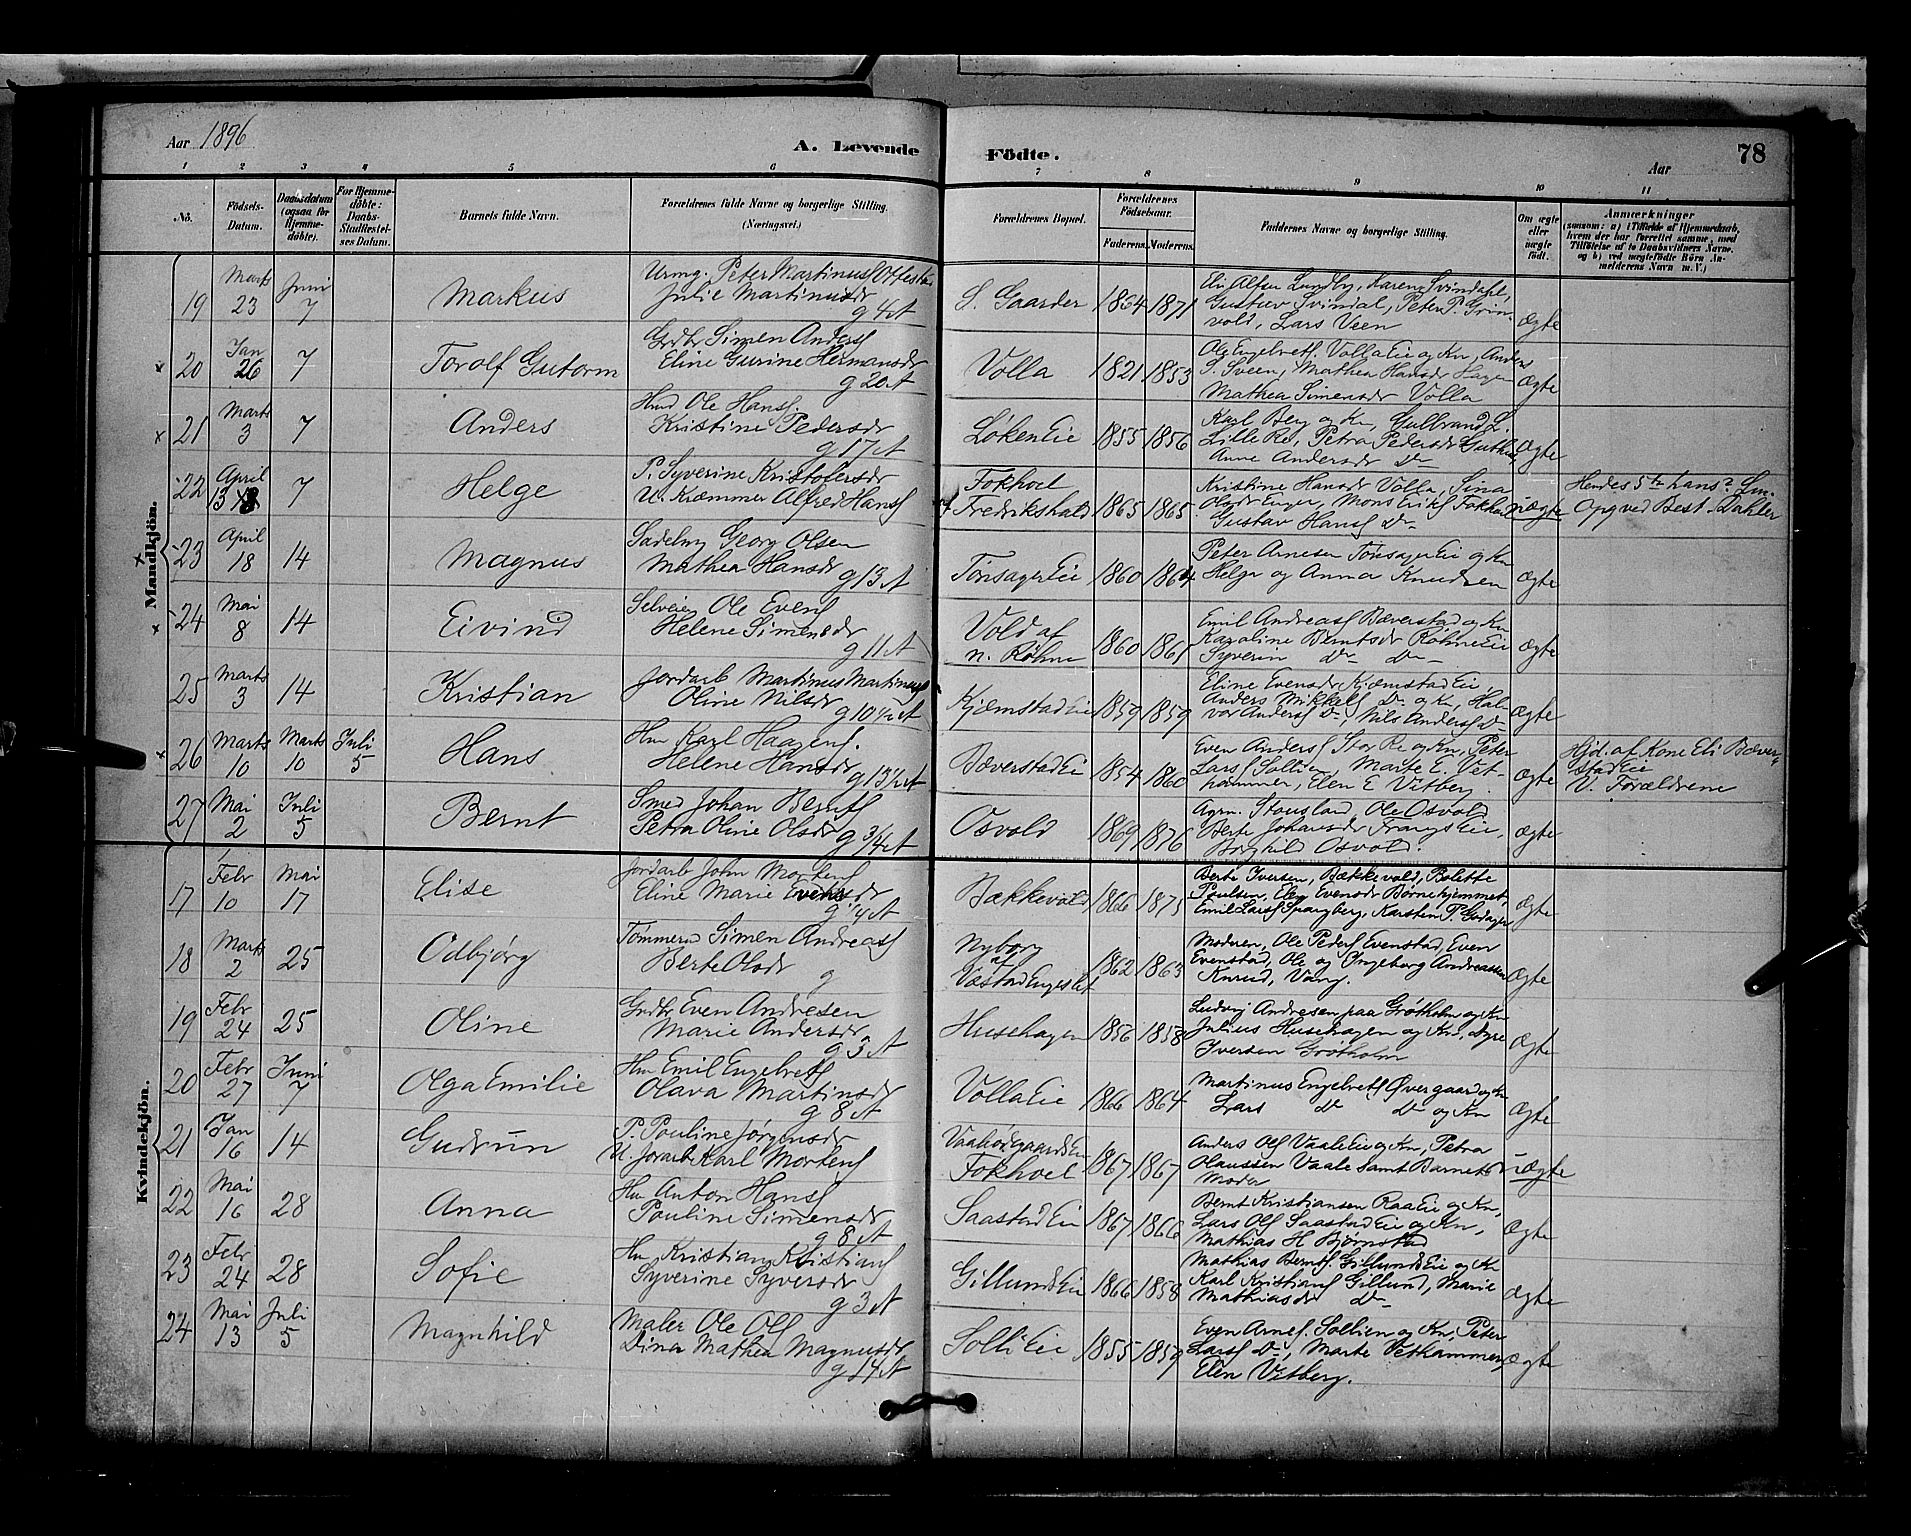 Aar 1896
A. Levende Födte.
Aar
78
1 2 3 4 5 6 7 8 9 10 11
No.
Födsels-
Datum.
Daabsdatum
(ogsaa for
Hjemme-
döbte).
For Hjemme-
döbte:
Daabs-
Stadfæstel-
ses Datum.
Barnets fulde Navn.
Forældrenes fulde Navne og borgerlige Stilling.
(Næringsvei.)
Forældrenes Bopæl.
Forældrenes
Födselsaar.
Faderens. Moderens.
Faddernes Navne og borgerlige Stilling.
Om ægte
eller
uægte
födt.
Anmærkninger
(saasom: a) i Tilfælde af Hjemmedaab,
hvem der har forrettet samme, med
Tilföielse af to Daabsvidners Navne,
og b) ved uægtefödte Börn An-
melderens Navn m. V.)
Mandkjön.
19 Marts 23 Juni 7 Markus
Urmg. Peter Martinus
Julie Martinusdr
g 4 A
S. Gaarder 1864 1871
Eli Alfsen Lundby, Karen Svindahl,
Gustav Svindal, Peter P. Grin-
vold, Lars Veen
ægte
20 Jan 26 7 Torolf Gutorm
Grdbr Simen Anders
Eline Gurine Hermansdr
g 20 A
Volla 1821 1853
Ole Engebrets. Volla Eie og Kn, Anders
S. Sveen, Mathea Hansdr Hagen
Mathea Simensdr Volla
ægte
21 Marts 3 7 Anders
Hmd Ole Hans.
Kristine Pedersdr
g 17 A
Løken Eie 1855 1856
Karl Berg og Kn, Gulbrand L.
Lille Re, Petra Pedersdr
Anne Andersdr Do
ægte
22 April 13 7 Helge
P. Syverine Kristofersdr
U. Kræmmer Alfred Hans
Fokhol
Fredrikshald 1865 1865
Kristine Hansdr Volla, Sina
Olsdr Enger, Mons Eriks Fokhol
Gustav Hans Do
uægte
Hendes 5te hans 2.
Opg ved Best. Dahler
23 April 18 14 Magnus
Sadelmg Georg Olsen
Mathea Hansdr
g 13 A
Tønsager Eie 1860 1864
Peter Arnesen Tønsager Eie og Kn
Helge og Anna Knudsen
ægte
24 Mai 8 14 Eivind
Selveier Ole Evens
Helene Simensdr
g 11 A
Vold af
n. Røhne 1860 1861
Emil Andreas Bæverstad og Kn
Karoline Berntsdr Røhne Eie
Syverin Do Do
ægte
25 Marts 3 14 Kristian
Jordarb Martinus Martinus
Oline Nilsdr
g 10 1/2 A
Kjæmstad Eie 1859 1859
Eline Evensdr Kjæmstad Eie,
Anders Mikkels Do og Kn, Hal-
vor Anders Do, Nils Anders Do
ægte
26 Marts 10 Marts 10 Juli 5 Hans
Hm Karl Haagens.
Helene Hansdr
g 13 1/2 A
Bæverstad Eie 1854 1860
Even Anders Stor Re og Kn, Peter
Lars Sollien, Marte E. Vet-
hammer, Elen E Vitberg
ægte
Hjd. af Kone Eli Bæver-
stad Eie
V. Forældrene
27 Mai 2 Juli 5 Bernt
Smed Johan Bernts
Petra Oline Olsdr
g 3/4 A
Osvold 1869 1876
Agrn. Stousland, Ole Osvold
Berte Johansdr Frangs Eie,
Borghild Osvold.
ægte
Kvindekjön.
17 Febr 10 Mai 17 Elise
Jordarb John Mortens
Eline Marie Evensdr
g 1/4 A
Bækkevold 1866 1875
Berte Iversen, Bækkevold, Bolette
Poulsen, Elen Evensdr Børnehjemmet
Emil Lars Spangberg, Karsten P. Godager
ægte
18 Marts 2 25 Odbjørg
Tømmerm Simen Andreas
Berte Olsdr
g
Nyborg
af
Væstad Engeslet 1862 1863
Moderen, Ole Peders Evenstad, Even
Evenstad, Ole og Ingeborg Andreassen
Knud, Vang.
ægte
19 Febr 24 25 Oline
Grdbr Even Andresen
Marie Andersdr
g 3 A
Husehagen 1856 1858
Ludvig Andresen paa Grøtholm og Kn
Julius Husehagen og Kn,
Iversen Grøtholm
ægte
20 Febr 27 Juni 7 Olga Emilie
Hm Emil Engebrets
Olava Martinsdr
g 8 A
Volla Eie 1866 1864
Martinus Engebrets Øvergaard og Kn
Lars Do Do og Kn
ægte
21 Jan 16 14 Gudrun
P. Pouline Jørgensdr
U. Jorarb Karl Mortens
Fokhol 1867 1867
Anders Ols Vaale Eie og Kn, Petra
Olaussen Vaale samt Barnets
Moder
uægte
22 Mai 16 28 Anna
Hm Anton Hans
Pouline Simensdr
g 8 A
Saastad Eie 1867 1866
Bernt Kristiansen Raa Eie og Kn,
Lars Ols Saastad Eie og Kn,
Mathias H Bjørnstad
ægte
23 Febr 24 28 Sofie
Hm Kristian Kristians
Syverine Syversdr
g 3 A
Gillund Eie 1866 1858
Mathias Bernts. Gillund Eie og Kn
Karl Kristians Gillund, Marie
Mathiasdr Do
ægte
24 Mai 13 Juli 5 Magnhild
Maler Ole Ols
Dina Mathea Magnusdr
g 14 A
Solli Eie 1855 1859
Even Arnes. Sollien og Kn, Peter
Lars Do, Marte Vethammer,
Elen Vitberg.
ægte